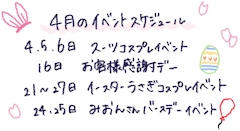 4月のイベントスケジュール
4.5.6日 スーツコスプレイベント
16日 お客様感謝デー
21〜27日 イースターうさぎコスプレイベント
24.25日 みおんさんバースデーイベント